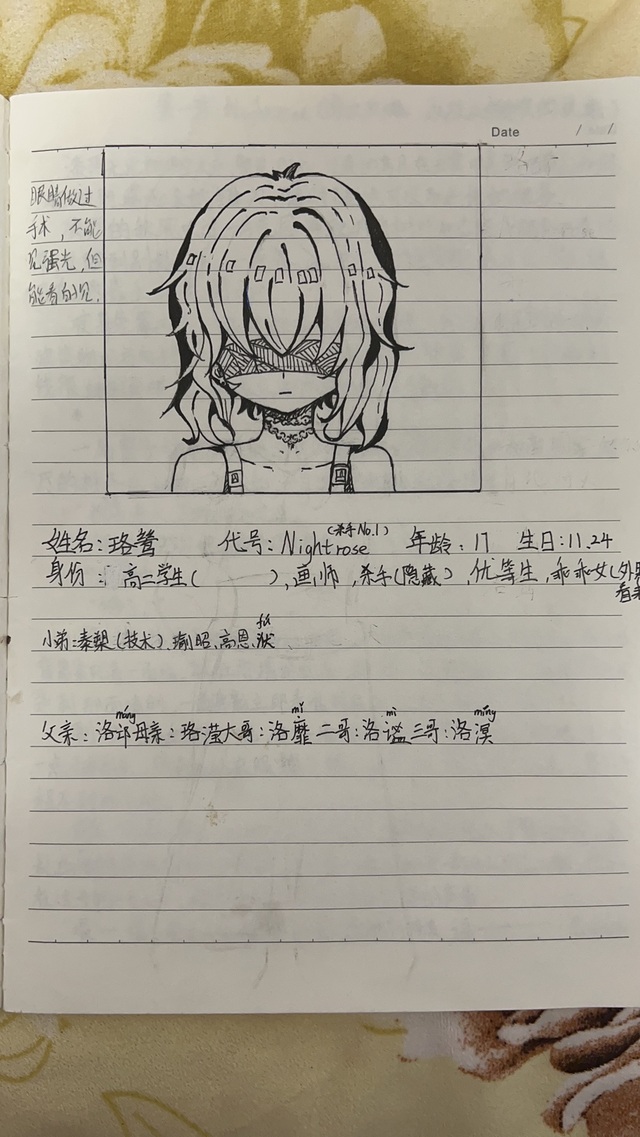 Date / /
眼睛做过
手术，不能
见强光，但
能看的见.
(杀手No.1)
姓名：珞鸶 代号：Nightrose 年龄：17 生日：11.24
身份：高二学生( )，画师，杀手(隐藏)，优等生，乖乖女(外界
看来
fú
小弟：秦槊(技术)、瑜昭、高恩、洑
míng mǐ mì míng
父亲：洛 母亲：珞滢 大哥：洛靡 二哥：洛谧 三哥：洛溟